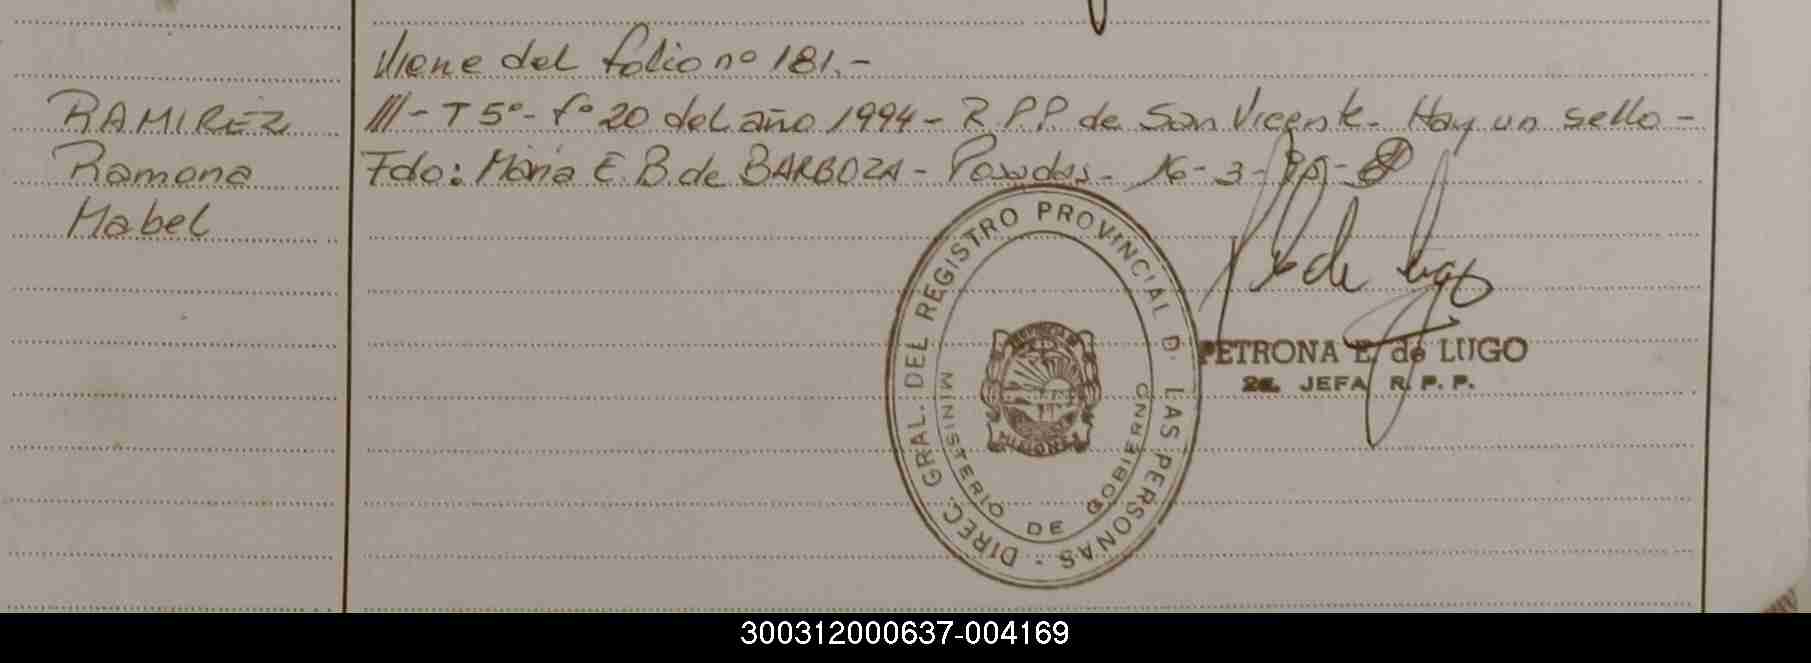 Viene del folio no 181.-
RAMIREZ
Ramona
Mabel
///- T 5°- f° 20 del año 1994 - R.P.P. de San Vicente. Hay un sello -
Fdo: María E. B. de BARBOZA - Posadas - 16-3-
DIREC. GRAL. DEL REGISTRO PROVINCIAL D. LAS PERSONAS
MINISTERIO DE GOBIERNO
PROVINCIA DE
MISIONES
de Lugo
PETRONA E. de LUGO
2a. JEFA R. P. P.
300312000637-004169